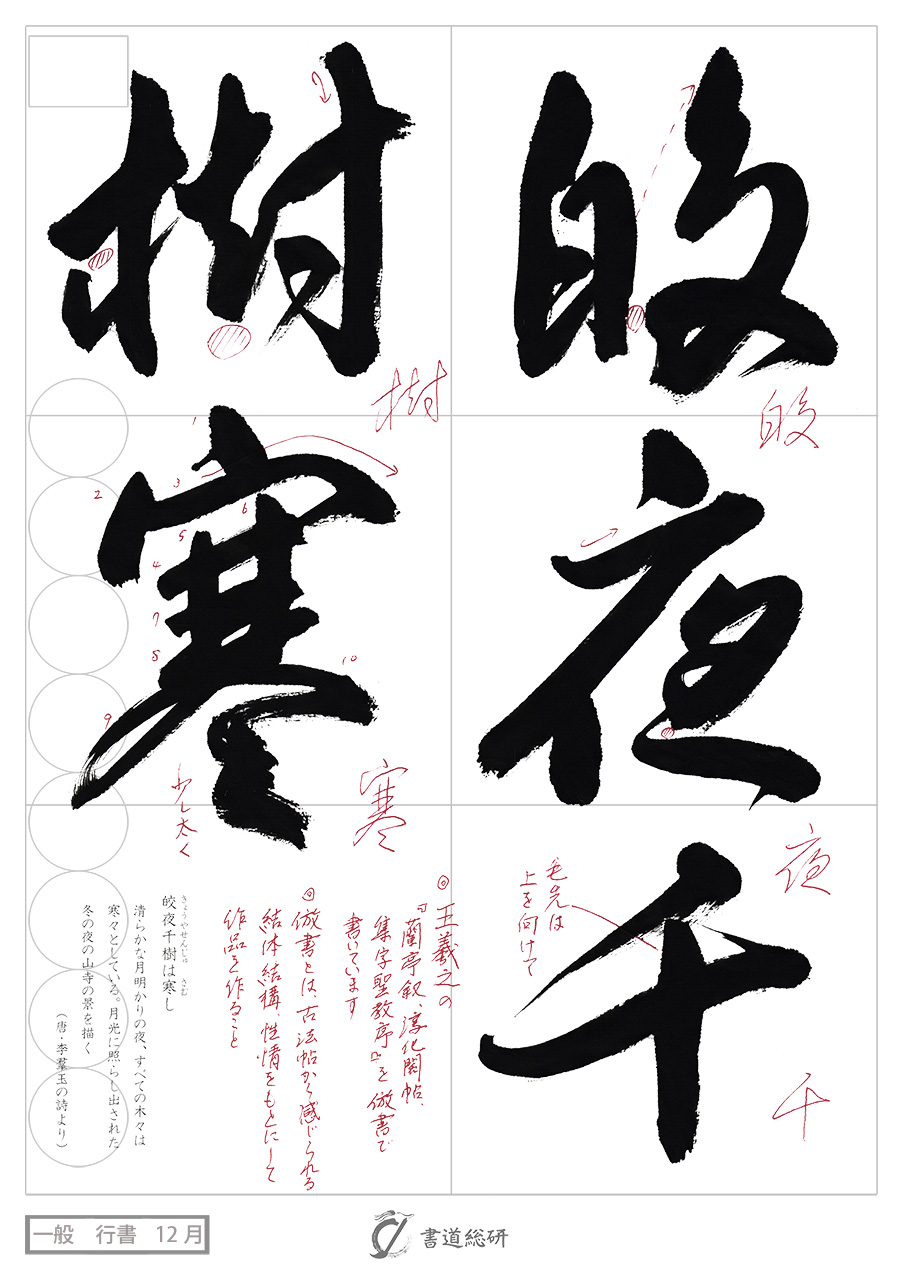 皎夜千
樹寒
皎
夜
千
樹
寒
1
2
3
4
5
6
7
8
9
10
少し太く
毛先は
上を向けて
◎王羲之の
『蘭亭叙、淳化閣帖、
集字聖教序』を倣書で
書いています
◎倣書とは、古法帖から感じられる
結体結構、性情をもとにして
作品を作ること
皎夜千樹は寒し
きょうやせんじゅ さむ
清らかな月明かりの夜、すべての木々は
寒々としている。月光に照らし出された
冬の夜の山寺の景を描く
（唐・李羣玉の詩より）
一般 行書 12月
書道総研